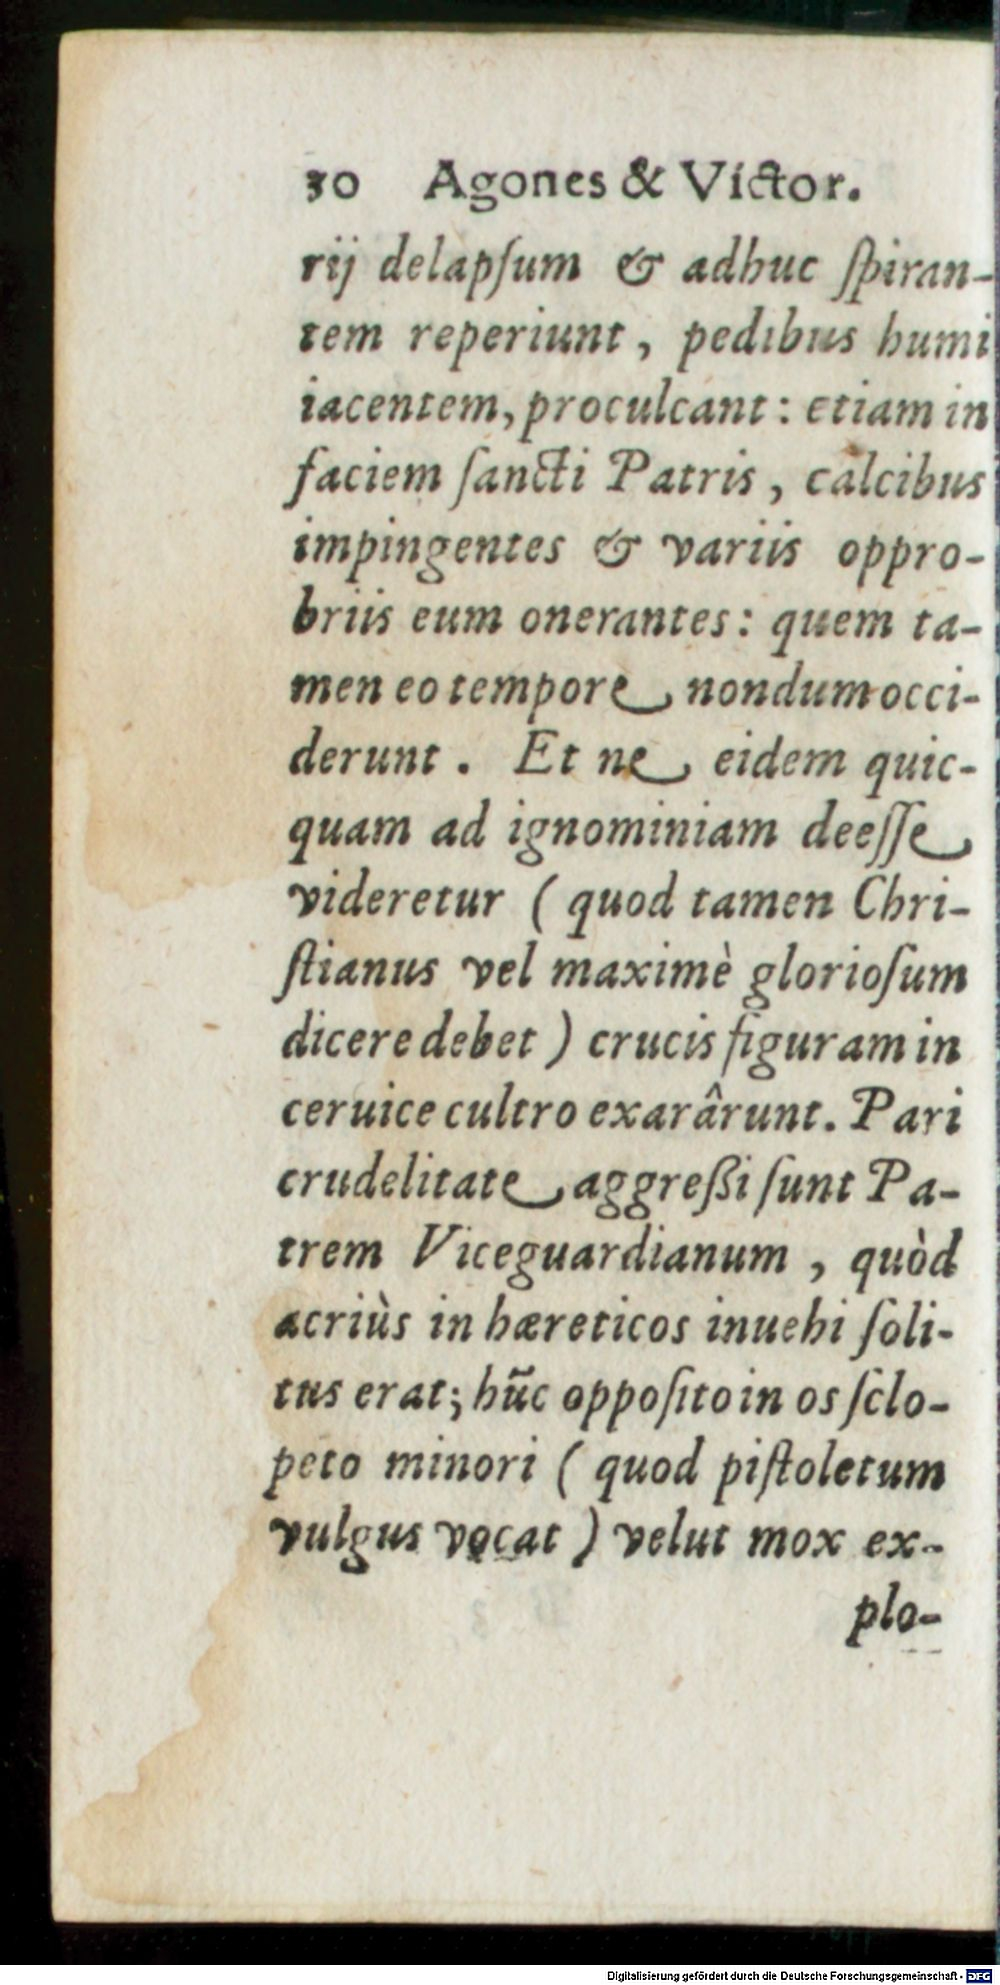 30 Agones & Victor.
rij delapſum & adhuc ſpiran-
tem reperiunt, pedibus humi
iacentem, proculcant: etiam in
faciem ſancti Patris, calcibus
impingentes & variis oppro-
briis eum onerantes: quem ta-
men eo tempore nondum occi-
derunt. Et ne eidem quic-
quam ad ignominiam deeſſe
videretur (quod tamen Chri-
ſtianus vel maximè glorioſum
dicere debet) crucis figuram in
ceruice cultro exarârunt. Pari
crudelitate aggreßi ſunt Pa-
trem Viceguardianum, quòd
acriùs in hæreticos inuehi ſoli-
tus erat; hũc oppoſito in os ſclo-
peto minori (quod piſtoletum
vulgus vocat) velut mox ex-
plo-
Digitalisierung gefördert durch die Deutsche Forschungsgemeinschaft - DFG